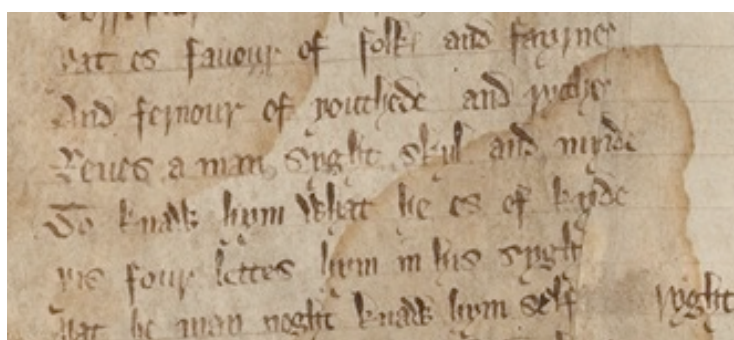 yat es fauour of folk and fayrnes
And feruour of youthede and ryches
Reues a man syght skyl and mynde
To knaw hym what he es of kynde
yis four lettes hym in his syght
yat he may noght knaw hym self ryght